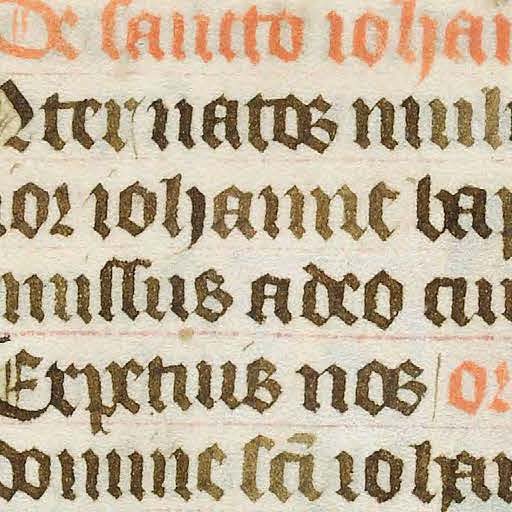 De sancto iohan
Nter natos muli
ior iohanne bap
missus a deo cui
Erpetuis nos or
domine scī iohan